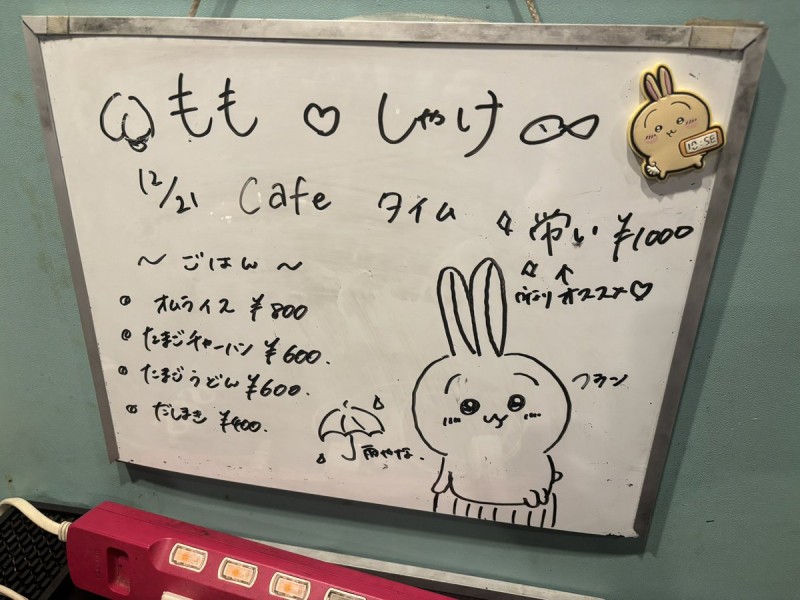 もも ♡ しゃけ
12/21 Cafe タイム
営い ¥1000
オススメ♡
～ ごはん ～
オムライス ¥800
たまごチャーハン ¥600.
たまごうどん ¥600.
だしまき ¥400.
雨やな.
フラン